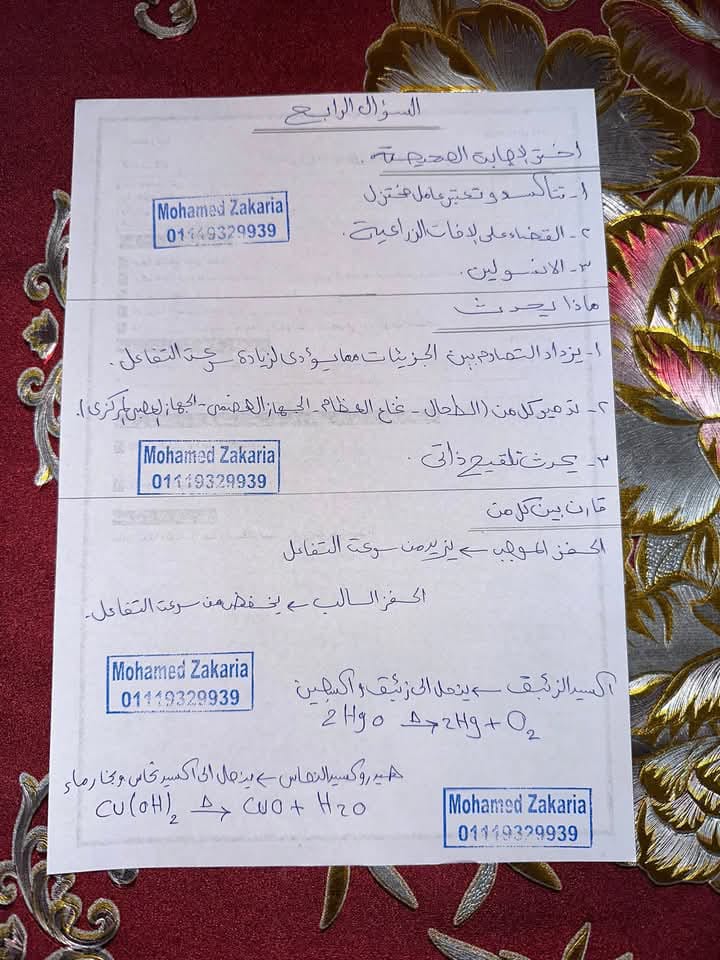 السؤال الرابع
اختر الإجابة الصحيحة .
١- تتأكسد وتعتبر عامل مختزل
Mohamed Zakaria
01119329939
٢- القضاء على الافات الزراعية .
٣- الانسولين .
ماذا يحدث
١- يزداد التصادم بين الجزيئات مما يؤدى لزيادة سرعة التفاعل .
٢- تدمير كل من (الطحال - نخاع العظام - الجهاز الهضمى - الجهاز العصبى المركزى).
Mohamed Zakaria
01119329939
٣- يحدث تلقيح ذاتى .
قارن بين كل من
الحفز الموجب ← يزيد من سرعة التفاعل
الحفز السالب ← يخفض من سرعة التفاعل .
Mohamed Zakaria
01119329939
اكسيد الزئبق ← ينحل الى زئبق و اكسجين
2HgO △→ 2Hg + O2
هيدروكسيد النحاس ← ينحل الى اكسيد نحاس وبخار ماء
Cu(OH)2 △→ CuO + H2O
Mohamed Zakaria
01119329939